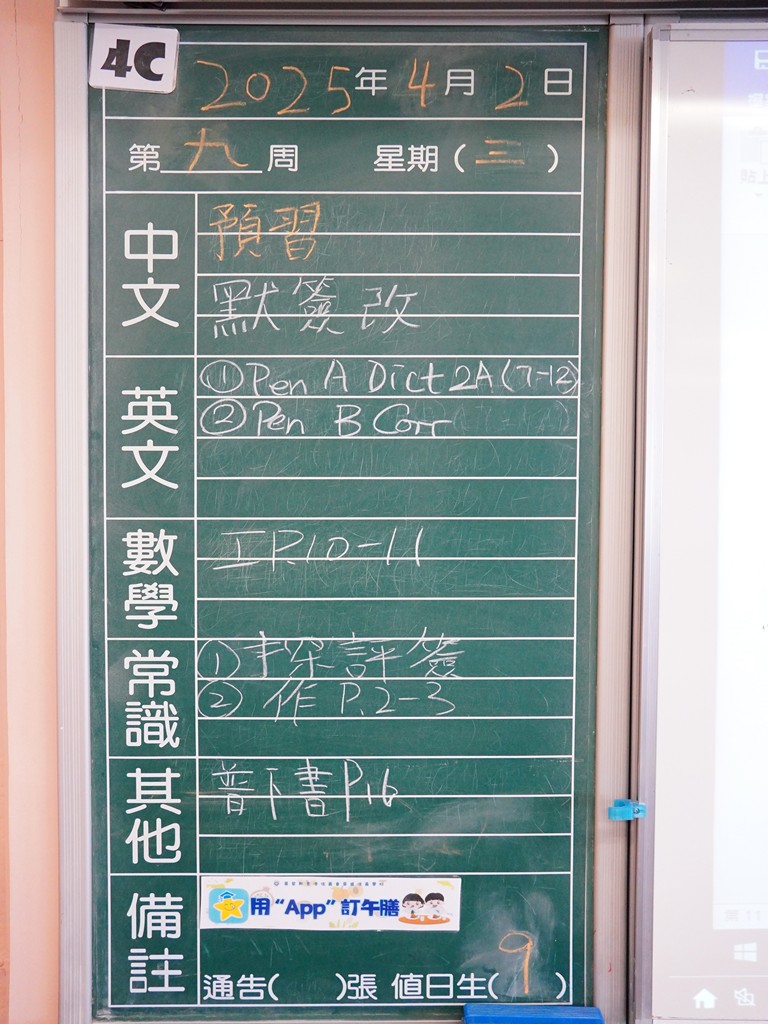 4C
2025年4月2日
第九周 星期(三)
中文
預習
默簽改
英文
①Pen A Dict 2A(7-12)
②Pen B Corr
數學
工P.10-11
常識
①探評簽
②作P.2-3
其他
普下書P.16
備註
用“App”訂午膳
通告( )張 值日生(9)